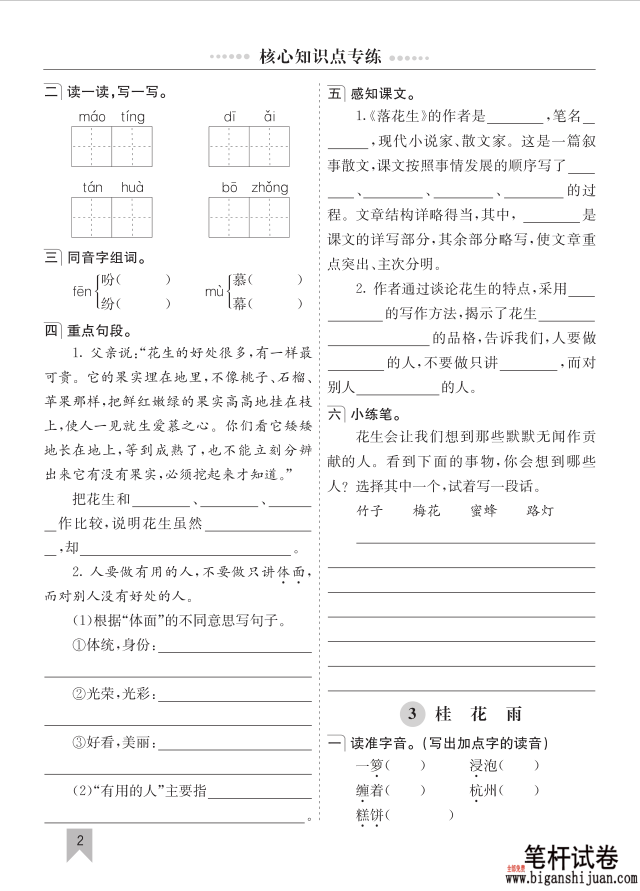 核心知识点专练
二 读一读,写一写。
máo tíng dī ǎi
tán huà bō zhǒng
三 同音字组词。
fēn 吩( ) 纷( ) mù 慕( ) 幕( )
四 重点句段。
1. 父亲说:“花生的好处很多,有一样最
可贵。它的果实埋在地里,不像桃子、石榴、
苹果那样,把鲜红嫩绿的果实高高地挂在枝
上,使人一见就生爱慕之心。你们看它矮矮
地长在地上,等到成熟了,也不能立刻分辨
出来它有没有果实,必须挖起来才知道。”
把花生和______、______、______
__作比较,说明花生虽然______
__,却______。
2. 人要做有用的人,不要做只讲体面,
而对别人没有好处的人。
(1)根据“体面”的不同意思写句子。
①体统,身份:______
______
②光荣,光彩:______
______
③好看,美丽:______
______
(2)“有用的人”主要指______
______。
2
五 感知课文。
1.《落花生》的作者是______,笔名__
______,现代小说家、散文家。这是一篇叙
事散文,课文按照事情发展的顺序写了____
____、______、______、______的过
程。文章结构详略得当,其中,______是
课文的详写部分,其余部分略写,使文章重
点突出、主次分明。
2. 作者通过谈论花生的特点,采用____
______的写作方法,揭示了花生______
______的品格,告诉我们,人要做
______的人,不要做只讲______,而对
别人______的人。
六 小练笔。
花生会让我们想到那些默默无闻作贡
献的人。看到下面的事物,你会想到哪些
人?选择其中一个,试着写一段话。
竹子 梅花 蜜蜂 路灯
3 桂花雨
一 读准字音。(写出加点字的读音)
一箩( ) 浸泡( )
缠着( ) 杭州( )
糕饼( )
全部免费
笔杆试卷
www.biganshijuan.com